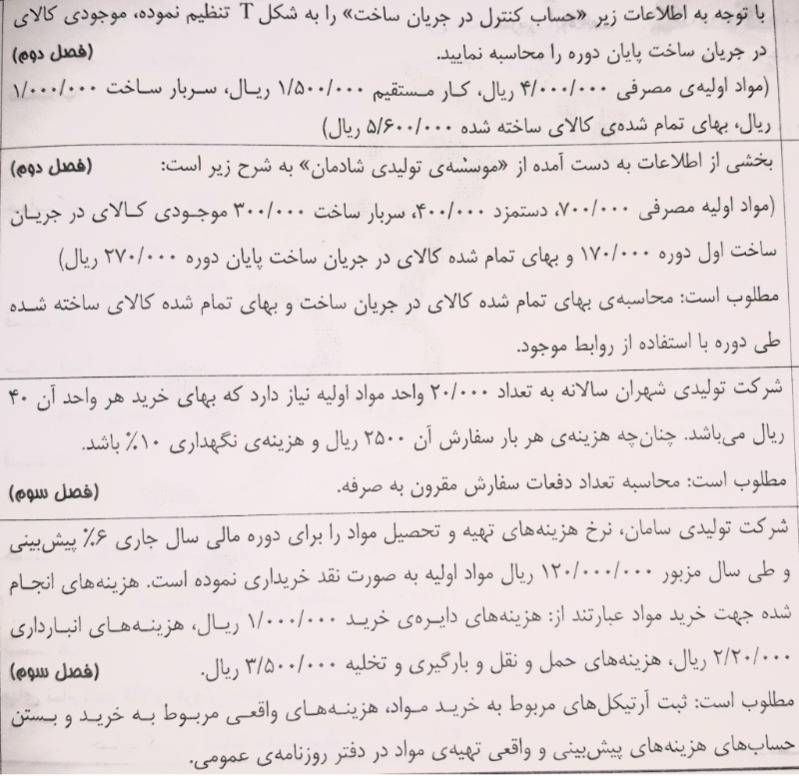 با توجه به اطلاعات زیر «حساب کنترل در جریان ساخت» را به شکل T تنظیم نموده، موجودی کالای
در جریان ساخت پایان دوره را محاسبه نمایید. (فصل دوم)
(مواد اولیه‌ی مصرفی ۴/۰۰۰/۰۰۰ ریال، کار مستقیم ۱/۵۰۰/۰۰۰ ریال، سربار ساخت ۱/۰۰۰/۰۰۰
ریال، بهای تمام شده‌ی کالای ساخته شده ۵/۶۰۰/۰۰۰ ریال)
بخشی از اطلاعات به دست آمده از «موسسه‌ی تولیدی شادمان» به شرح زیر است: (فصل دوم)
(مواد اولیه مصرفی ۷۰۰/۰۰۰، دستمزد ۴۰۰/۰۰۰، سربار ساخت ۳۰۰/۰۰۰ موجودی کالای در جریان
ساخت اول دوره ۱۷۰/۰۰۰ و بهای تمام شده کالای در جریان ساخت پایان دوره ۲۷۰/۰۰۰ ریال)
مطلوب است: محاسبه‌ی بهای تمام شده کالای در جریان ساخت و بهای تمام شده کالای ساخته شده
طی دوره با استفاده از روابط موجود.
شرکت تولیدی شهران سالانه به تعداد ۲۰/۰۰۰ واحد مواد اولیه نیاز دارد که بهای خرید هر واحد آن ۴۰
ریال می‌باشد. چنان‌چه هزینه‌ی هر بار سفارش آن ۲۵۰۰ ریال و هزینه‌ی نگهداری ۱۰٪ باشد.
مطلوب است: محاسبه تعداد دفعات سفارش مقرون به صرفه. (فصل سوم)
شرکت تولیدی سامان، نرخ هزینه‌های تهیه و تحصیل مواد را برای دوره مالی سال جاری ۶٪ پیش‌بینی
و طی سال مزبور ۱۲۰/۰۰۰/۰۰۰ ریال مواد اولیه به صورت نقد خریداری نموده است. هزینه‌های انجام
شده جهت خرید مواد عبارتند از: هزینه‌های دایره‌ی خرید ۱/۰۰۰/۰۰۰ ریال، هزینه‌های انبارداری
۲/۲۰/۰۰۰ ریال، هزینه‌های حمل و نقل و بارگیری و تخلیه ۳/۵۰۰/۰۰۰ ریال. (فصل سوم)
مطلوب است: ثبت آرتیکل‌های مربوط به خرید مواد، هزینه‌های واقعی مربوط به خرید و بستن
حساب‌های هزینه‌های پیش‌بینی و واقعی تهیه‌ی مواد در دفتر روزنامه‌ی عمومی.